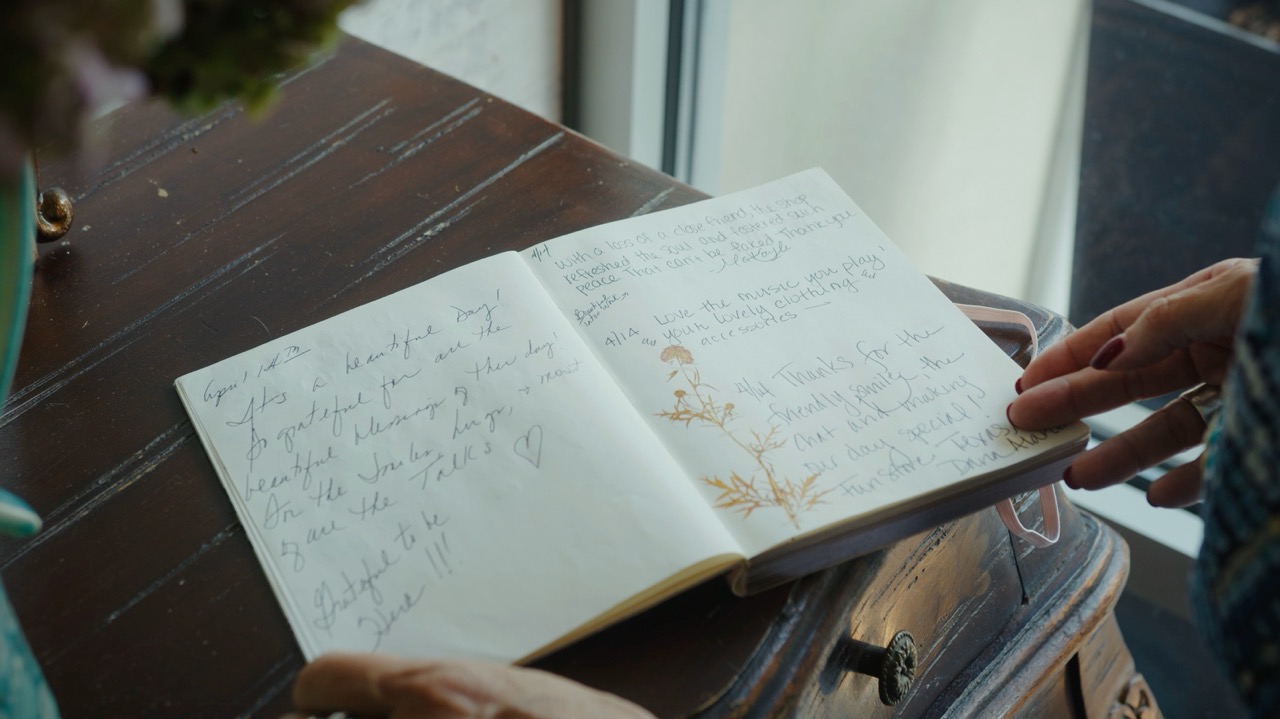 April 14th
It's a beautiful Day!
So grateful for all the
beautiful blessings of this day!
In the Smiles, hugs, + most
of all the Talks ♡
Grateful to be
Here !!!
4/14 With a loss of a close friend, the shop
refreshed the soul and fostered such
peace that can't be faked. Thank you
4/14 Love the music you play
your lovely clothing &
accessories —
4/14 Thanks for the
friendly smile, the
chat and making
our day special!
Texas
Dana